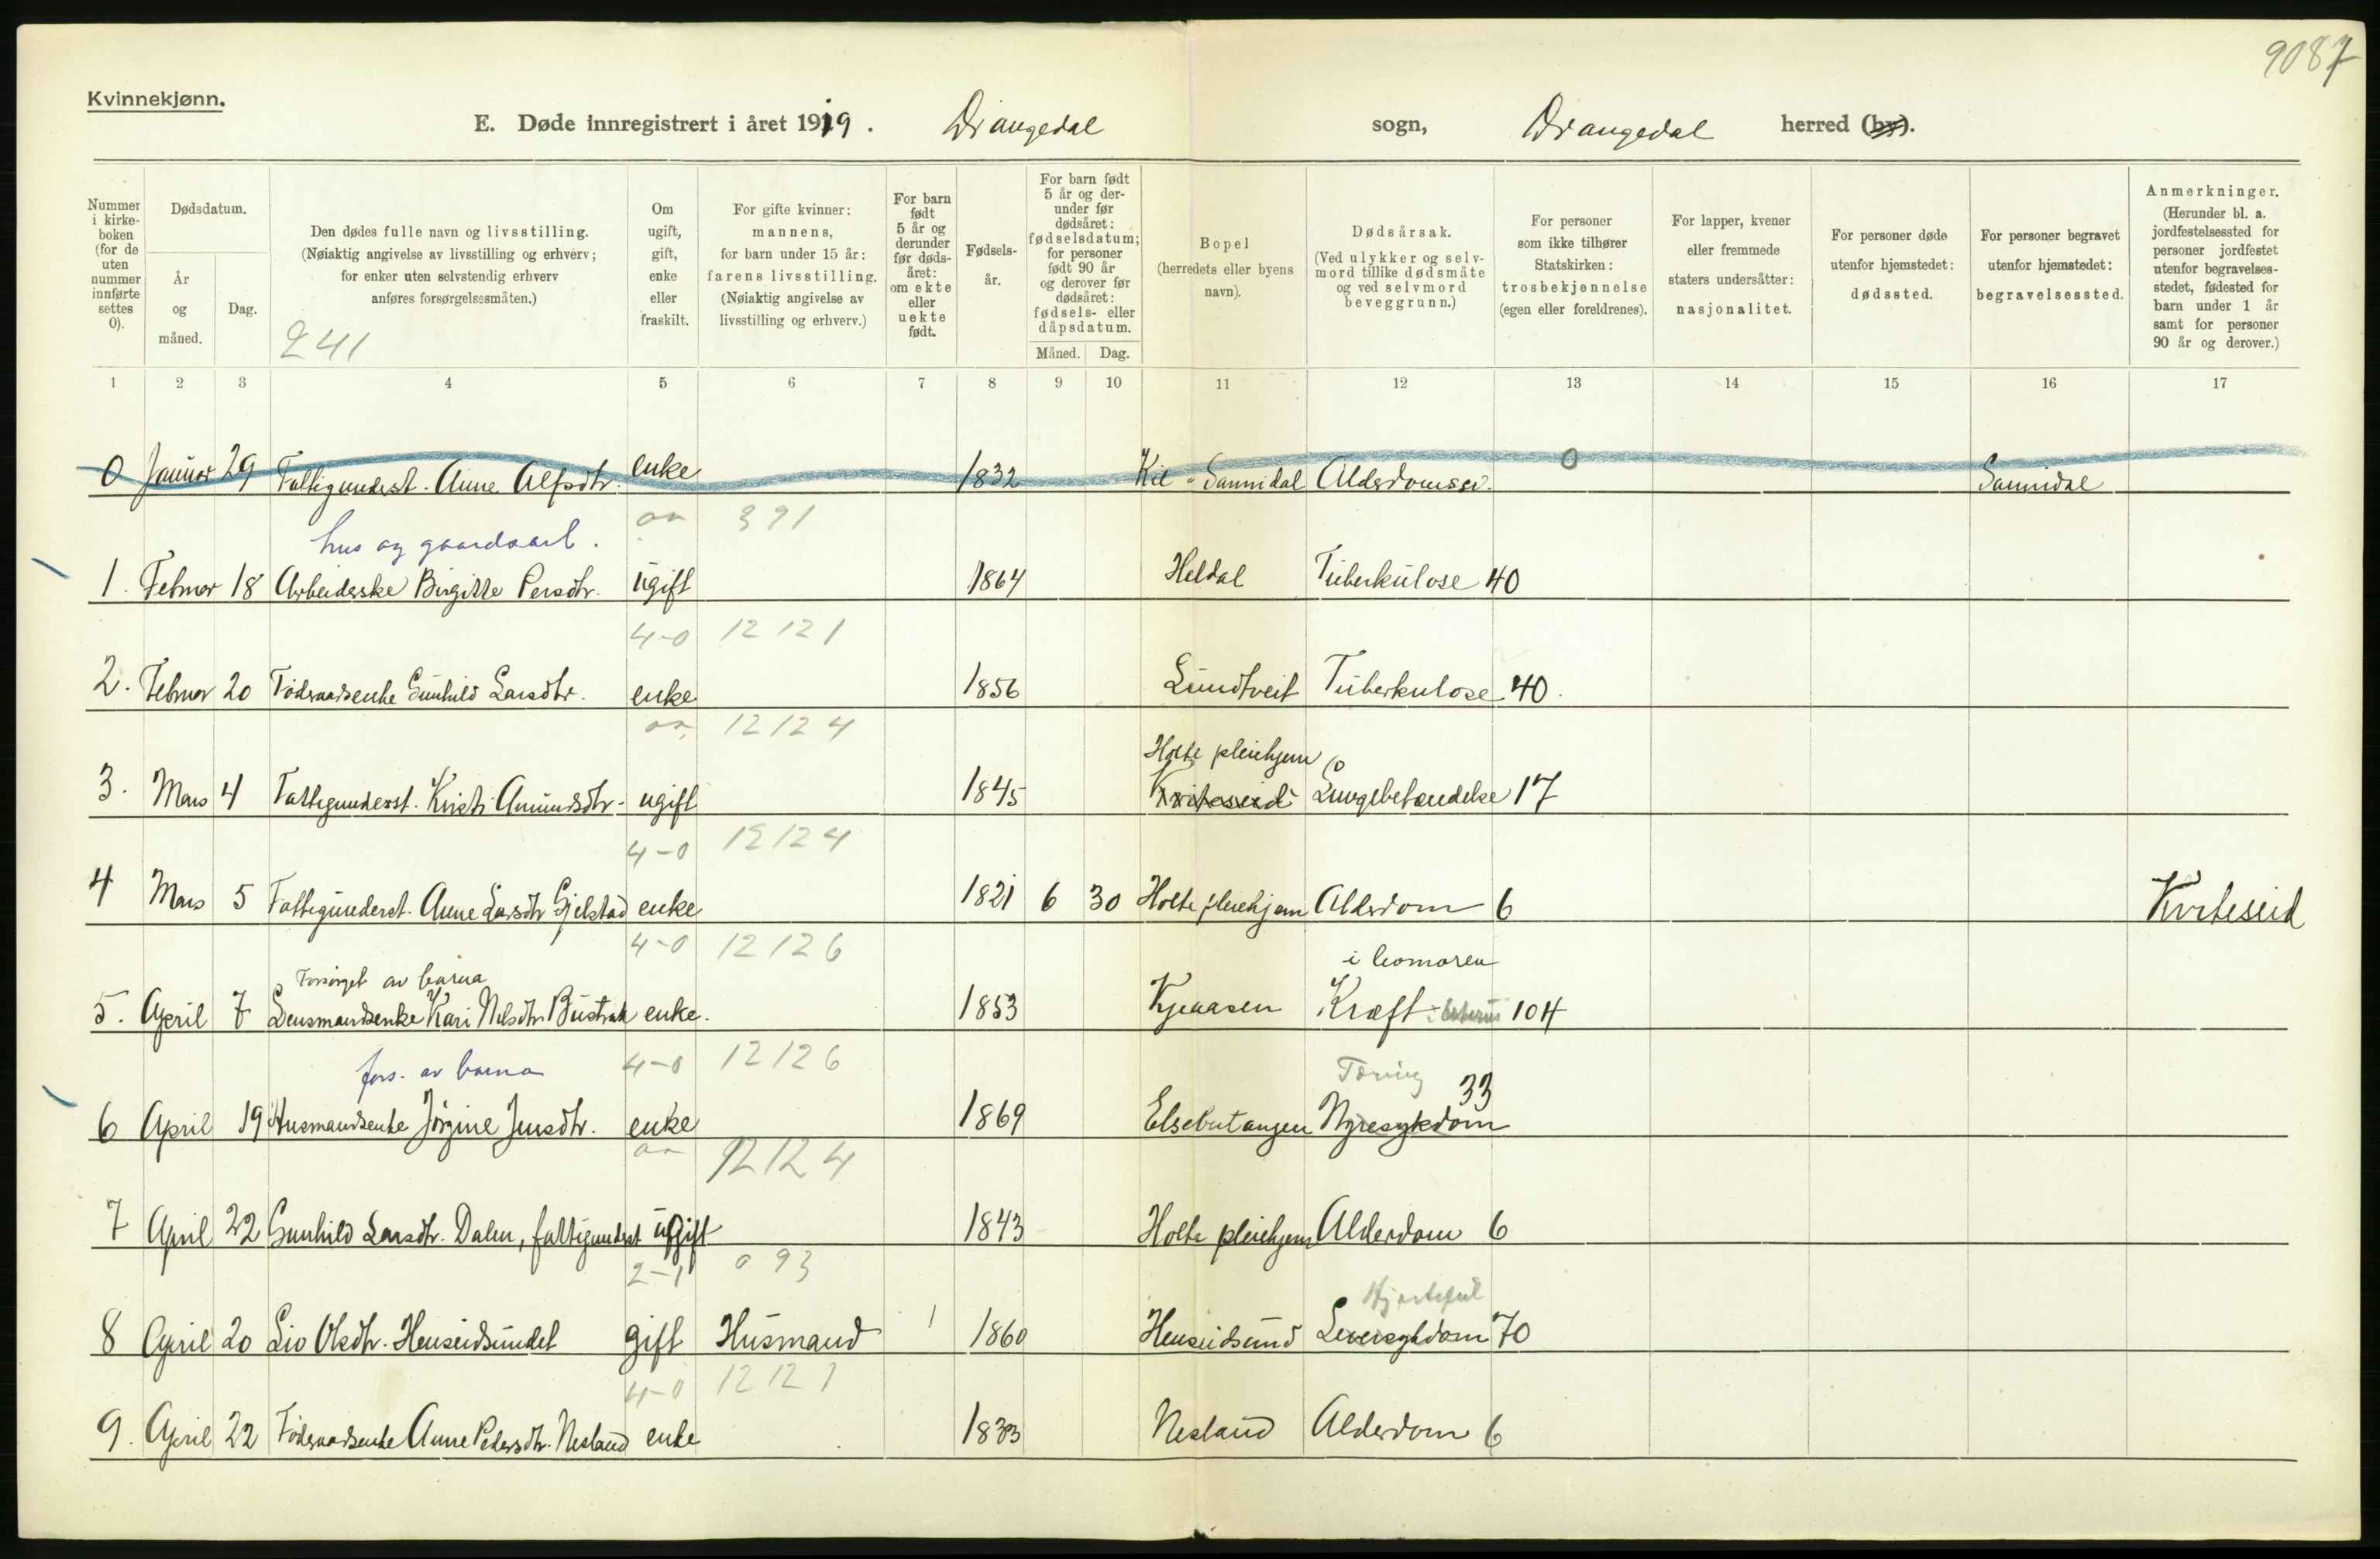 9087
Kvinnekjønn.
E. Døde innregistrert i året 1919. Drangedal sogn, Drangedal herred (by).
Nummer i kirkeboken (for de uten nummer innførte settes 0).
Dødsdatum.
År og måned.
Dag.
Den dødes fulle navn og livsstilling.
(Nøiaktig angivelse av livsstilling og erhverv;
for enker uten selvstendig erhverv
anføres forsørgelsesmåten.)
241
Om ugift, gift, enke eller fraskilt.
For gifte kvinner: mannens, for barn under 15 år: farens livsstilling. (Nøiaktig angivelse av livsstilling og erhverv.)
For barn født 5 år og derunder før dødsåret: om ekte eller uekte født.
Fødselsår.
For barn født 5 år og derunder før dødsåret: fødselsdatum; for personer født 90 år og derover før dødsåret: fødsels- eller dåpsdatum.
Måned. Dag.
Bopel (herredets eller byens navn).
Dødsårsak. (Ved ulykker og selvmord tillike dødsmåte og ved selvmord beveggrunn.)
For personer som ikke tilhører Statskirken: trosbekjennelse (egen eller foreldrenes).
For lapper, kvener eller fremmede staters undersåtter: nasjonalitet.
For personer døde utenfor hjemstedet: dødssted.
For personer begravet utenfor hjemstedet: begravelsessted.
Anmerkninger. (Herunder bl. a. jordfestelsessted for personer jordfestet utenfor begravelsesstedet, fødested for barn under 1 år samt for personer 90 år og derover.)
1 2 3 4 5 6 7 8 9 10 11 12 13 14 15 16 17
0 Januar 29 Fattigunderst. Anne Alfsdtr. enke 1832 Kil - Sannidal Alderdomssv. 0 Sannidal
391
hus og gaardsarb.
1. Februar 18 Arbeiderske Birgitte Persdtr. ugift 1864 Heldal Tuberkulose 40
4-0 12 12 1
2. Februar 20 Føderaadsenke Gunhild Larsdtr. enke 1856 Lundtveit Tuberkulose 40.
12 12 4
Holte pleiehjem
3. Mars 4 Fattigunderst. Kirsti Amundsdtr. ugift 1845 Kviteseid Lungebetændelse 17
4-0 12 12 4
4 Mars 5 Fattigunderst. Anne Larsdtr Gjelstad enke 1821 6 30 Holte pleiehjem Alderdom 6 Kviteseid
4-0 12 12 6
Forsørget av barna i livmoren
5. April 7 Lensmandsenke Kari Nilsdtr. Bustrak enke. 1853 Kjeaasen Kræft 104
4-0 12 12 6
fors. av barna Tæring
6 April 19 Husmandsenke Jørgine Jensdtr. enke 1869 Elsebutangen Nyresykdom 33
12 12 4
7 April 22 Gunhild Larsdtr. Dalen, fattigunderst ugift 1843 Holte pleiehjem Alderdom 6
2-1 0 93
Hjertefeil
8 April 20 Liv Olsdtr. Henseidsundet gift Husmand 1 1860 Henseidsund Leversykdom 70
4-0 12 12 1
9. April 22 Føderaadsenke Anne Pedersdtr. Nesland enke 1833 Nesland Alderdom 6